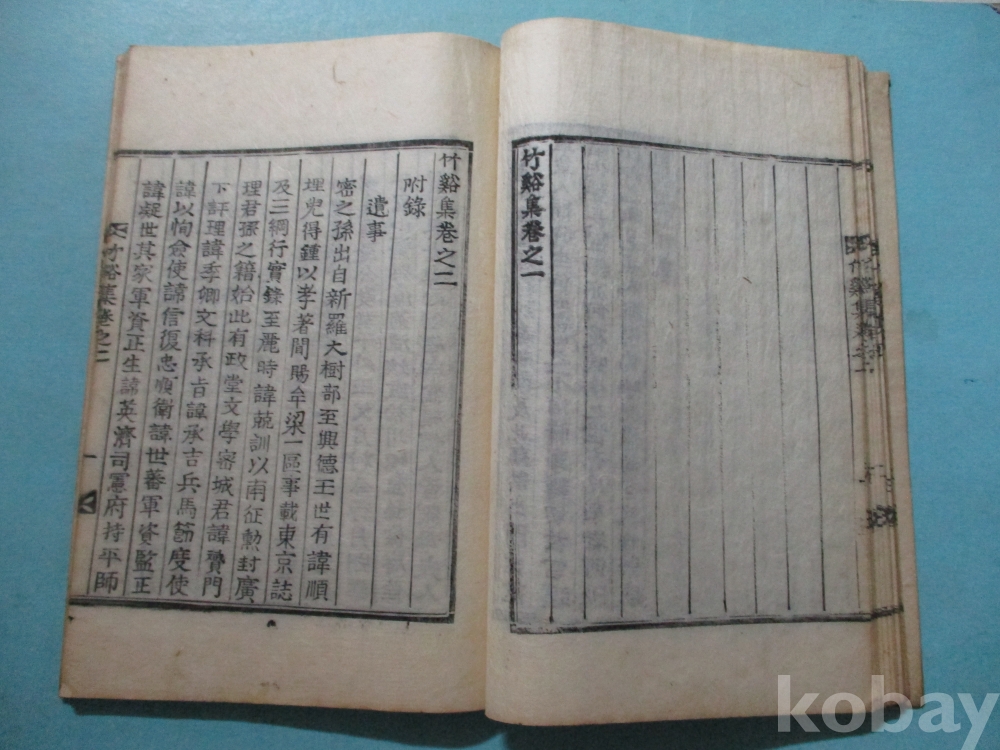 竹谿集卷之一
竹谿集卷之二
附錄
遺事
密之孫出自新羅大樹部至興德王世有諱順
埋兒得鍾以孝著聞賜牟梁一區事載東京誌
及三綱行實錄至麗時諱兢訓以南征勲封廣
理君孫之籍始此有政堂文學密城君諱贇門
下評理諱季卿文科承旨諱承吉兵馬節度使
諱以恂僉使諱信復忠順衛諱世蕃軍資監正
諱凝世其家軍資正生諱英濟司憲府持平師
竹谿集卷之二
一
kobay